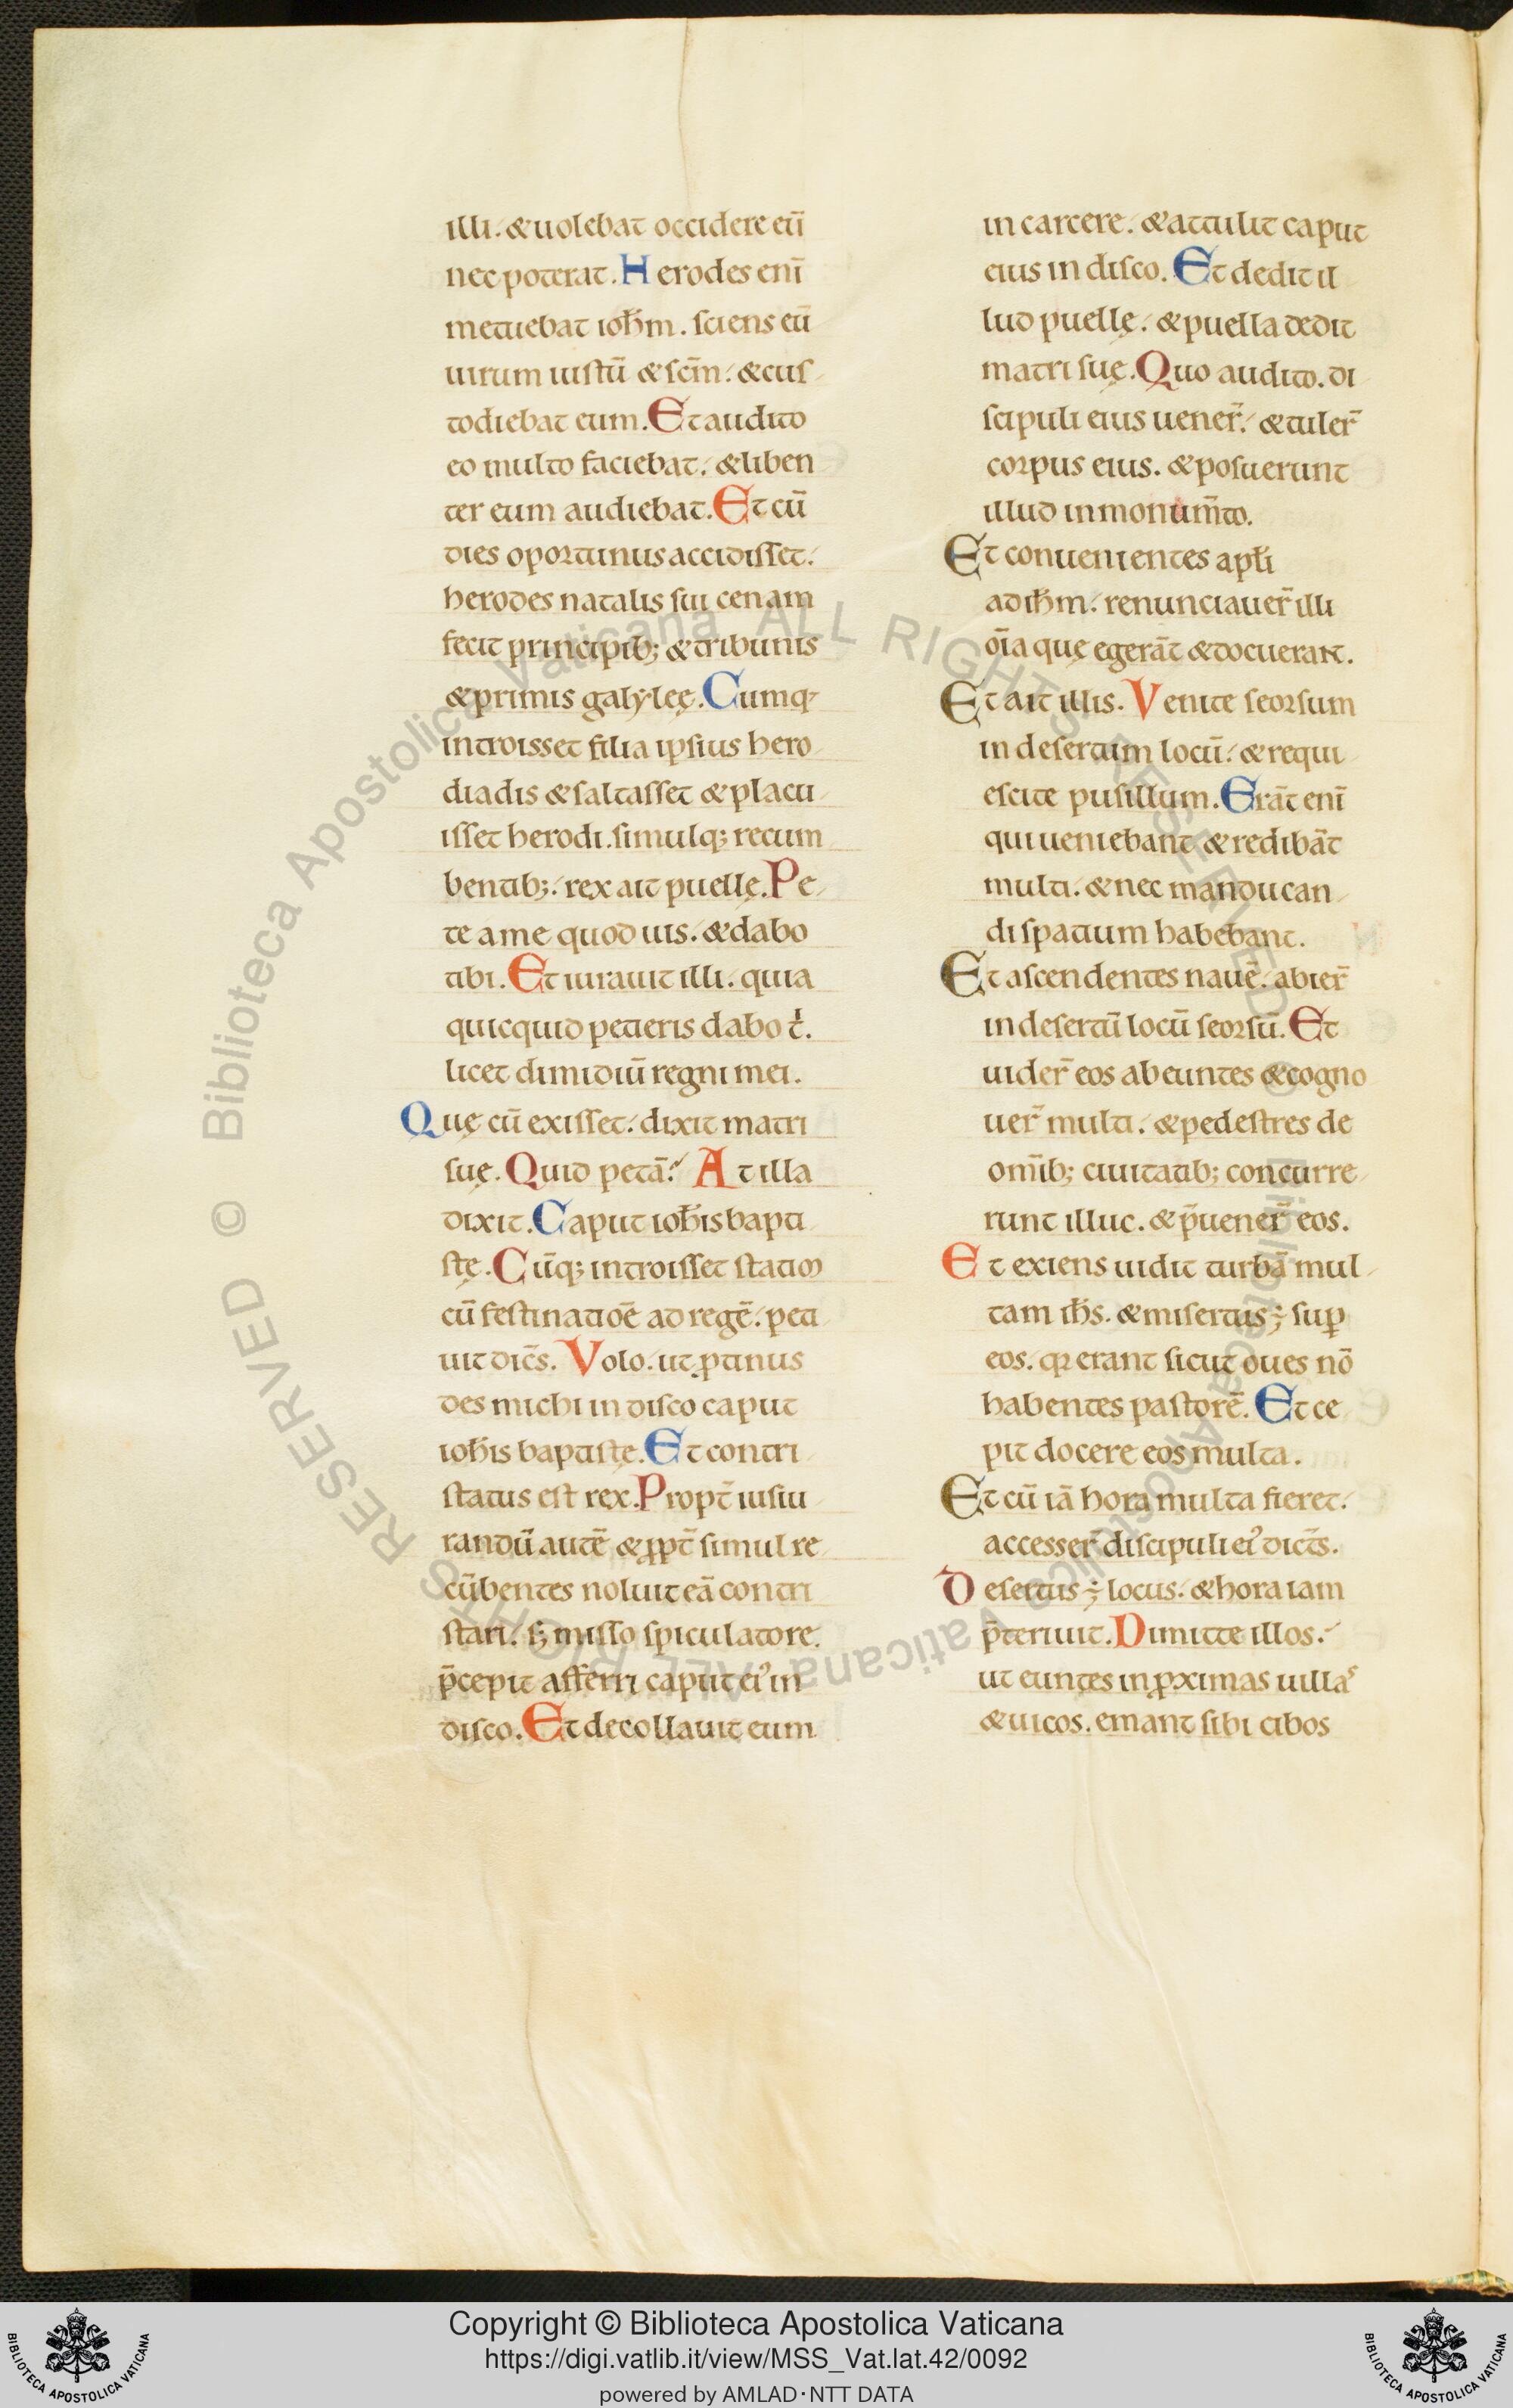 illi. &uolebat occidere eū
nec poterat. Herodes enī
metuebat ioħm. sciens eū
uirum iustū & scm̄. & cus
todiebat eum. Et audito
eo multo faciebat. & liben
ter eum audiebat. Et cū
dies oportunus accidisset.
herodes natalis sui cenam
fecit principib; & tribunis
& primis galylęę. Cumq;
introisset filia ipsius hero
diadis & saltasset & placu
isset herodi. simulq; recum
bentib;. rex ait puellę. Pe
te a me quod uis. & dabo
tibi. Et iurauit illi. quia
quicquid petieris dabo t̄.
licet dimidiū regni mei.
Quę cū exisset. dixit matri
suę. Quid petā? At illa
dixit. Caput ioħis bapti
stę. Cūq; introisset statim
cū festinatiōe ad regē. peti
uit dic̄s. Volo. ut ꝓtinus
des michi in disco caput
ioħis baptistę. Et contri
status est rex. Propt̄ iusiu
randū autē & ꝓpt̄ simul re
cūbentes noluit eā contri
stari. sꝫ misso spiculatore
p̄cepit afferri caput ei᾽ in
disco. Et decollauit eum
in carcere. & attulit caput
eius in disco. Et dedit il
lud puellę. & puella dedit
matri suę. Quo audito. di
scipuli eius uener̄. & tuler̄
corpus eius. & posuerunt
illud in monum̄to.
Et conuenientes apłi
ad iħm. renunciauer̄ illi
oīa quę egerāt & docuerant.
Et ait illis. Venite seorsum
in desertum locū. & requi
escite pusillum. Erāt enī
qui ueniebant & redibāt
multi. & nec manducan
di spatium habebant.
Et ascendentes nauē. abier̄
in desertū locū seorsū. Et
uider̄ eos abeuntes & cogno
uer̄ multi. & pedestres de
omīb; ciuitatib; concurre
runt illuc. & p̄uener̄ eos.
Et exiens uidit turbā mul
tam iħs. & misertus ÷ suꝑ
eos. qꝛ erant sicut oues nō
habentes pastorē. Et ce
pit docere eos multa.
Et cū iā hora multa fieret.
accesser̄ discipuli ei᾽ dicēs.
Desertus ÷ locus. & hora iam
p̄teriuit. Dimitte illos.
ut euntes in ꝓximas uillas
& uicos. emant sibi cibos
© Biblioteca Apostolica Vaticana ALL RIGHTS RESERVED © Biblioteca Apostolica Vaticana ALL RIGHTS RESERVED
BIBLIOTECA APOSTOLICA VATICANA
Copyright © Biblioteca Apostolica Vaticana
https://digi.vatlib.it/view/MSS_Vat.lat.42/0092
powered by AMLAD·NTT DATA
BIBLIOTECA APOSTOLICA VATICANA